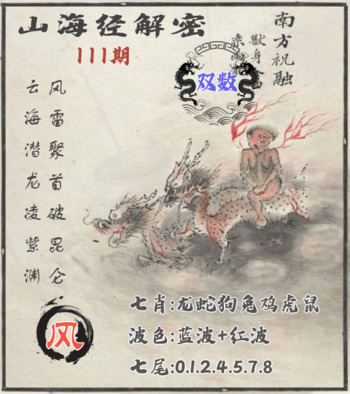 山海经解密
111期
南方祝融
獸身
乘兩
双数
风雷聚首破昆仑
云海潜龙凌紫渊
风
七肖:龙蛇狗兔鸡虎鼠
波色:蓝波+红波
七尾:0.1.2.4.5.7.8